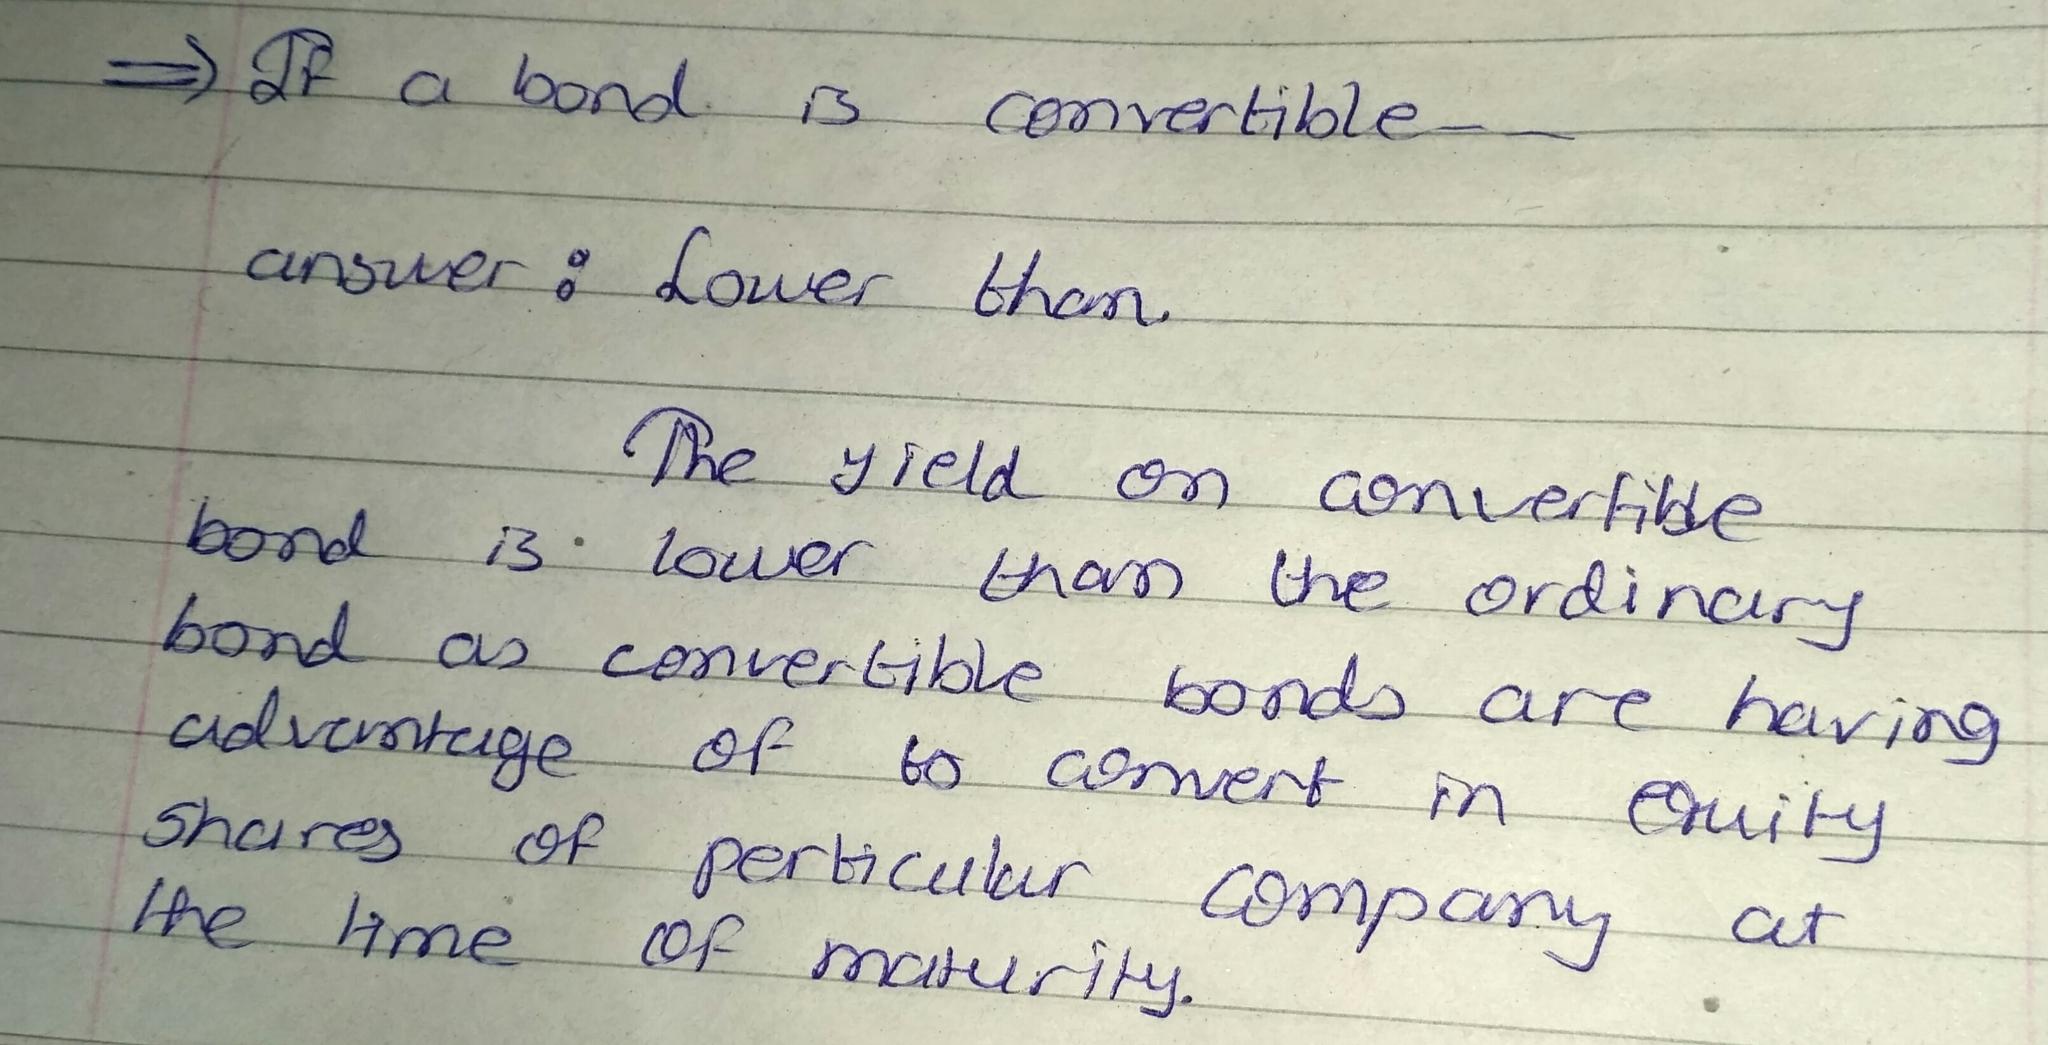 ⇒ If a bond is convertible--
answer: Lower than.
The yield on convertible
bond is lower than the ordinary
bond as convertible bonds are having
advantage of to convert in equity
shares of perticular company at
the time of maturity.